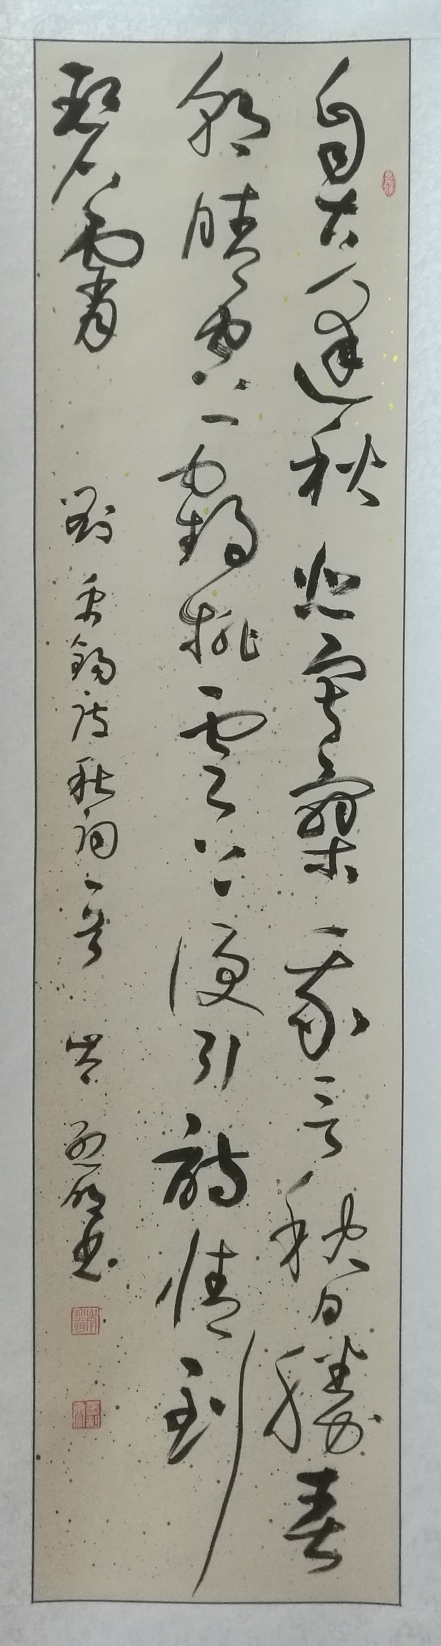 自古逢秋悲寂寥我言秋日勝春
朝晴空一鶴排雲上便引詩情到
碧霄
劉禹錫诗秋词一首 书